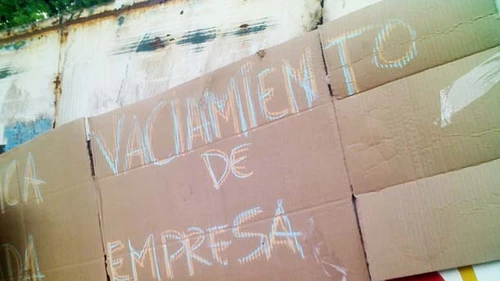 VACIAMIENTO
DE
EMPRESA